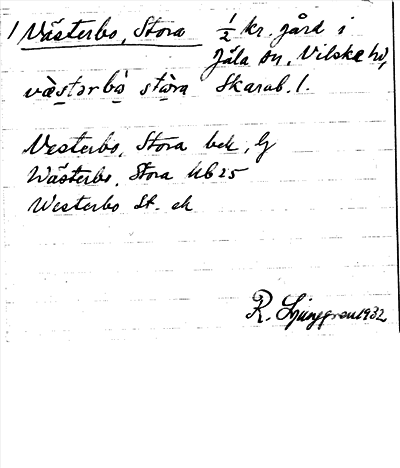 1 Västerbo, Stora 1/2 kr. gård i
Jäla sn, Vilske hd,
västərbò stòra Skarab. l.
Vesterbo, Stora bek, G
Wästerbo, Stora Kb 25
Westerbo St. ek
R. Ljunggren 1932